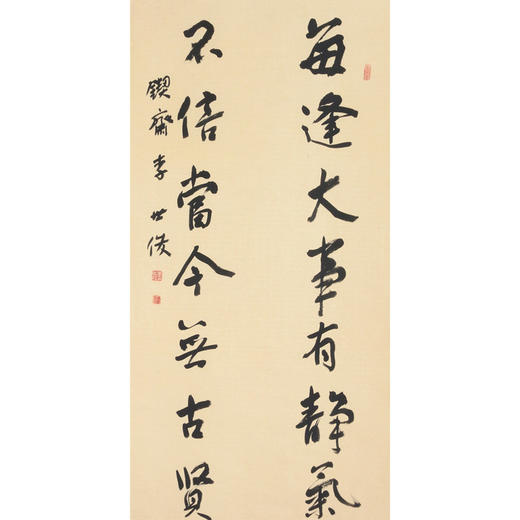 每逢大事有靜氣
不信當今無古贤
鍥齋李世俊